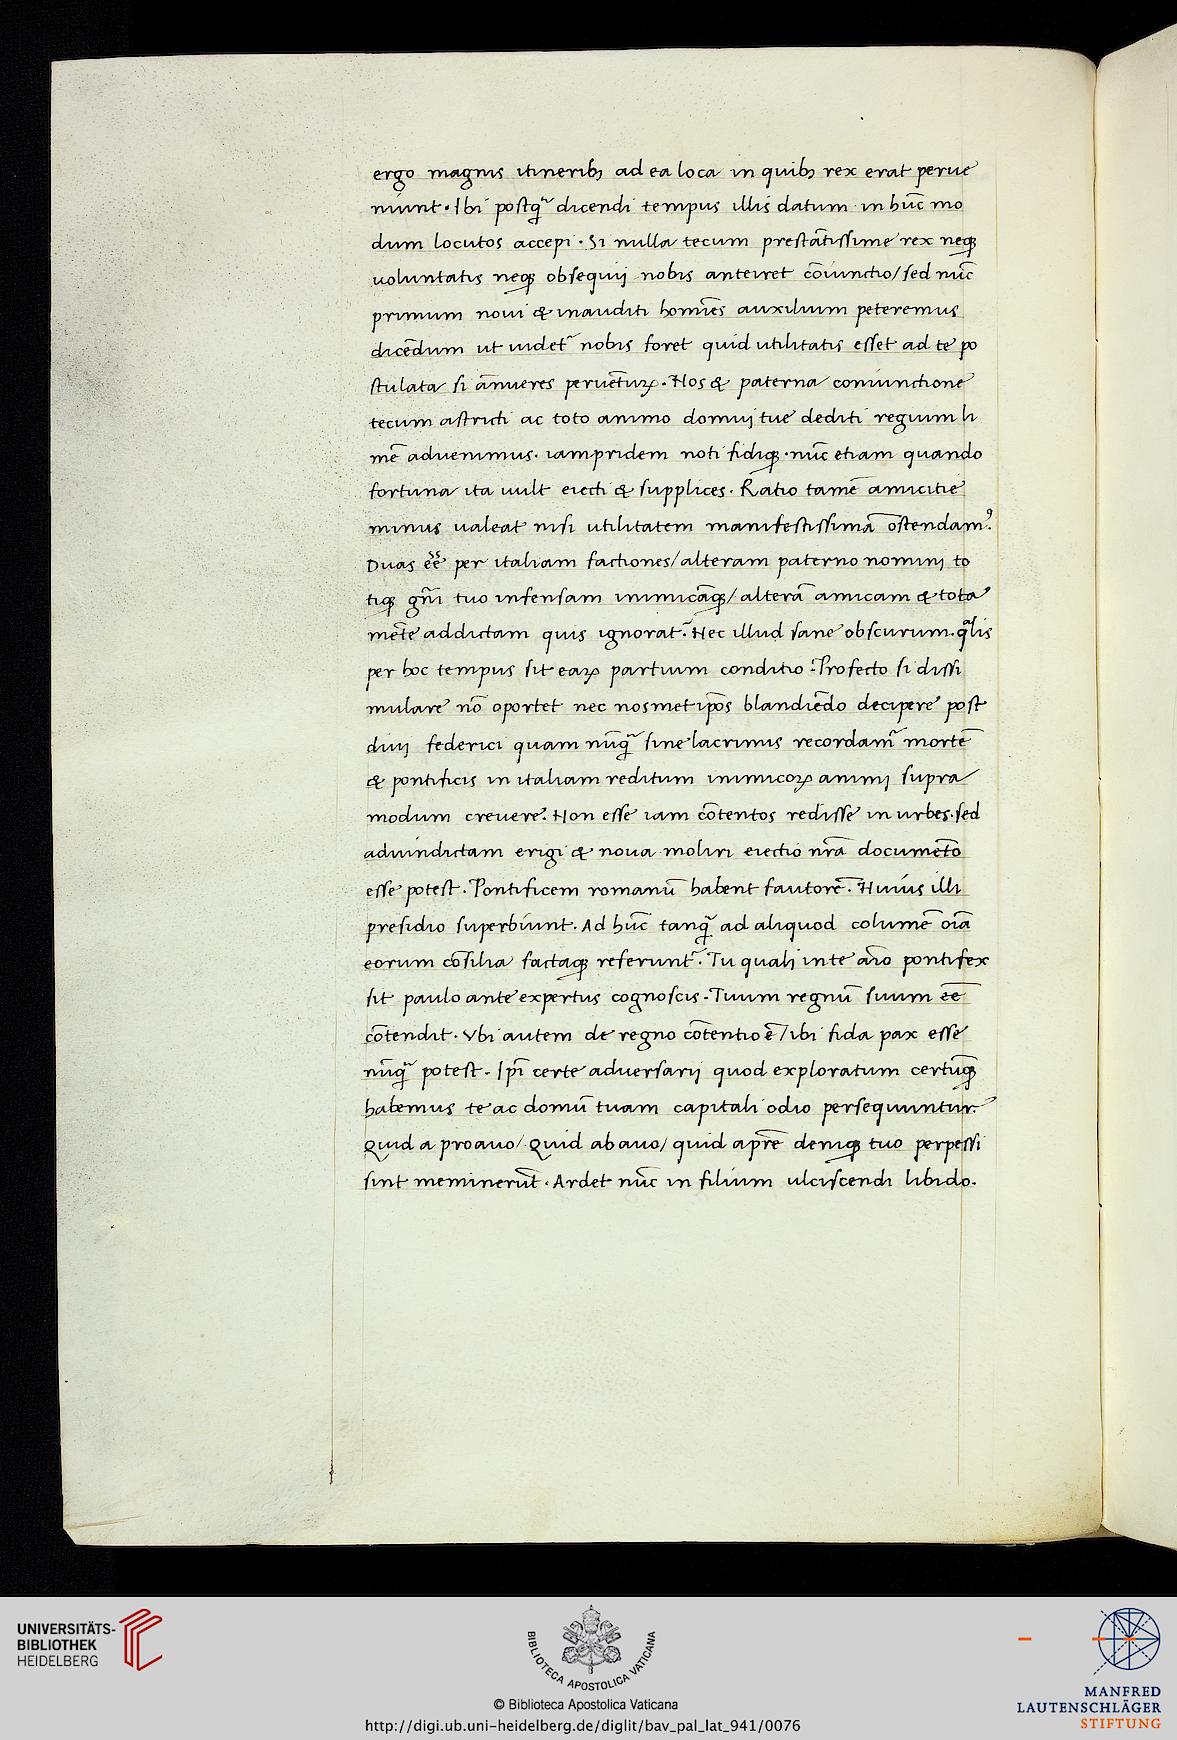 ergo magnis itineribꝫ ad ea loca in quibꝫ rex erat perue
niunt. Ibi postq̃ dicendi tempus illis datum in hūc mo
dum locutos accepi. Si nulla tecum prestātissime rex neqꝫ
uoluntatis neqꝫ obsequij nobis anteiret cōiunctio/ sed nūc
primum noui & inauditi homīes auxilium peteremus
dicēdum ut uidet᷑ nobis foret quid utilitatis esset ad te po
stulata si ānueres peruētuꝝ. Nos & paterna coniunctione
tecum astricti ac toto animo domuj tue dediti regium li
mē aduenimus. iampridem noti fidiqꝫ. nūc etiam quando
fortuna ita uult eiecti & supplices. Ratio tamē amicitie
minus ualeat nisi utilitatem manifestissimā ostendam⁹.
Duas eē per italiam factiones/ alteram paterno nominj to
tiqꝫ gn̄i tuo infensam inimicāqꝫ/ alterā amicam & tota
mēte addictam quis ignorat? Nec illud sane obscurum. q̃lis
per hoc tempus sit eaꝝ partium conditio? Profecto si dissi
mulare nō oportet nec nosmet ip̄os blandiēdo decipere post
diuj federici quam nūq̃ sine lacrimis recordam᷑ mortē
& pontificis in italiam reditum inimicoꝝ animj supra
modum creuere. Non esse iam cōtentos redisse in urbes. sed
ad uindictam erigi & noua moliri eiectio nr̄a documēto
esse potest. Pontificem romanū habent fautorē. Huius illi
presidio superbiunt. Ad hūc tanq̃ ad aliquod columē oīa
eorum cōsilia factaqꝫ referunt᷑. Tu qualj in te aīo pontifex
sit paulo ante expertus cognoscis. Tuum regnū suum eē
cōtendit. Vbi autem de regno cōtentio ē/ ibi fida pax esse
nūq̃ potest. Ip̄i certe aduersarij quod exploratum certūqꝫ
habemus te ac domū tuam capitali odio persequuntur.
Quid a proauo/ Quid ab auo/ quid a pr̄e deniqꝫ tuo perpessi
sint meminerūt. Ardet nūc in filium ulciscendi libido.
UNIVERSITÄTS-
BIBLIOTHEK
HEIDELBERG
BIBLIOTECA APOSTOLICA VATICANA
© Biblioteca Apostolica Vaticana
http://digi.ub.uni-heidelberg.de/diglit/bav_pal_lat_941/0076
MANFRED
LAUTENSCHLÄGER
STIFTUNG